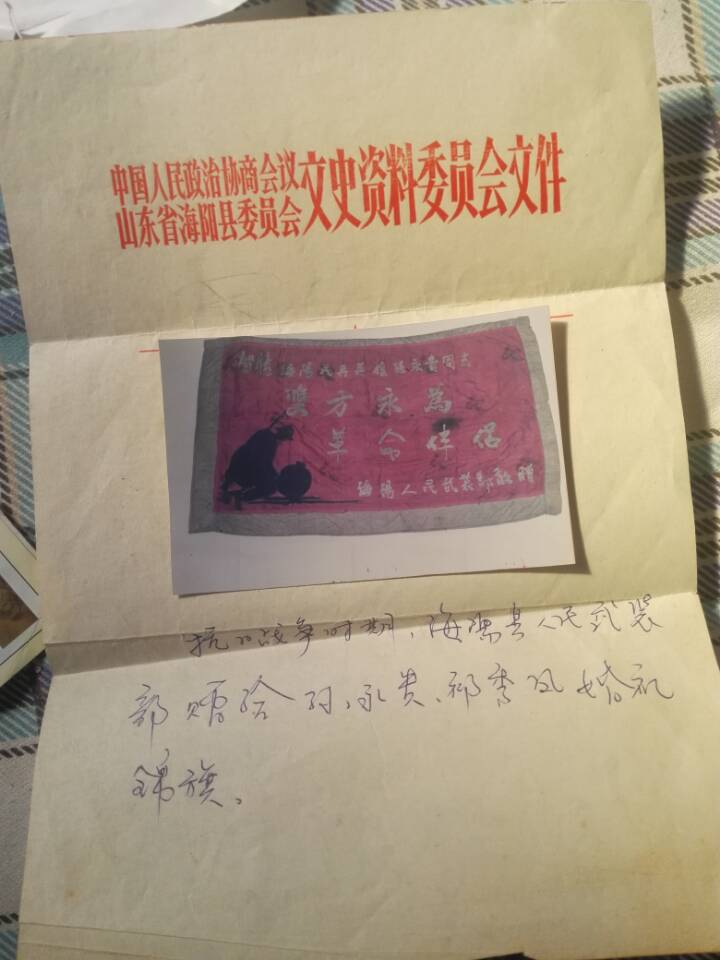 中国人民政治协商会议
山东省海阳县委员会
文史资料委员会文件
海陽民兵英雄孫永貴同志
雙方永為
革命伴侶
海陽人民武装部敬贈
抗日战争时期,海阳县人民武装
部赠给孙永贵、祁秀凤婚礼
锦旗。